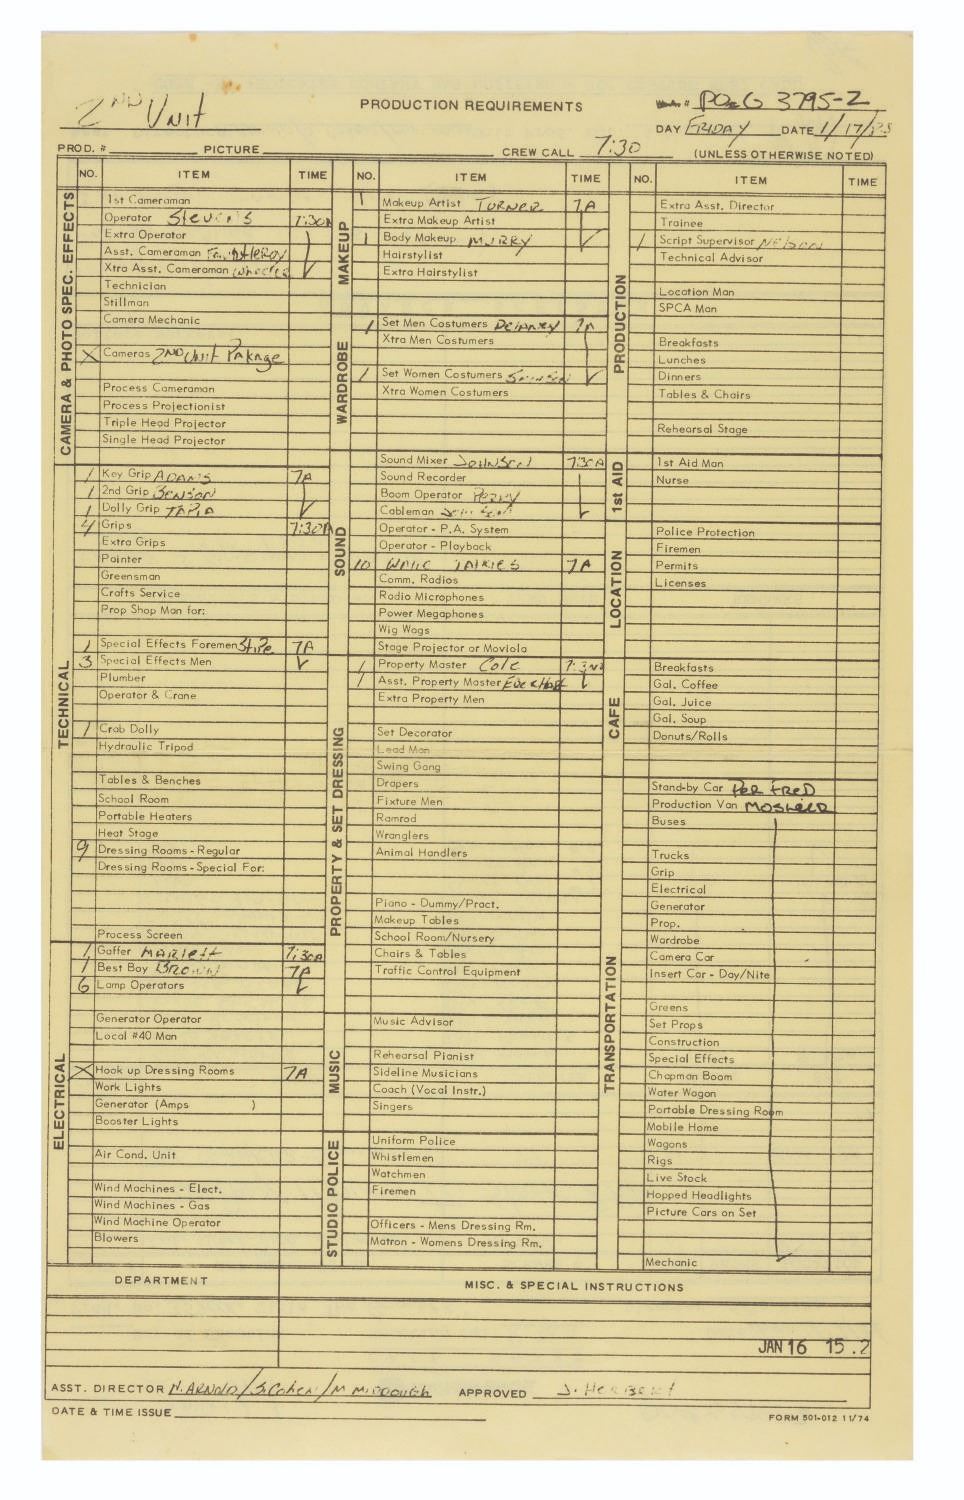 2ND Unit
PRODUCTION REQUIREMENTS
# 3795-2
DAY FRIDAY DATE 1/17/
PROD. # PICTURE CREW CALL 7:30 (UNLESS OTHERWISE NOTED)
NO. ITEM TIME NO. ITEM TIME NO. ITEM TIME
CAMERA & PHOTO SPEC. EFFECTS
1st Cameraman
Operator Stevens 7:30A
Extra Operator
Asst. Cameraman
Xtra Asst. Cameraman Wheeler
Technician
Stillman
Camera Mechanic
X Cameras 2ND Unit PAKAGE
Process Cameraman
Process Projectionist
Triple Head Projector
Single Head Projector
TECHNICAL
1 Key Grip ADAMS 7A
1 2nd Grip BENSON
1 Dolly Grip TAPIA
4 Grips 7:30A
Extra Grips
Painter
Greensman
Crafts Service
Prop Shop Man for:
1 Special Effects Foremen 7A
3 Special Effects Men
Plumber
Operator & Crane
1 Crab Dolly
Hydraulic Tripod
Tables & Benches
School Room
Portable Heaters
Heat Stage
9 Dressing Rooms - Regular
Dressing Rooms - Special For:
Process Screen
ELECTRICAL
1 Gaffer 7:30A
1 Best Boy BROWN 7A
6 Lamp Operators
Generator Operator
Local #40 Man
X Hook up Dressing Rooms 7A
Work Lights
Generator (Amps )
Booster Lights
Air Cond. Unit
Wind Machines - Elect.
Wind Machines - Gas
Wind Machine Operator
Blowers
MAKEUP
1 Makeup Artist TURNER 7A
Extra Makeup Artist
1 Body Makeup MURRY
Hairstylist
Extra Hairstylist
WARDROBE
1 Set Men Costumers 7A
Xtra Men Costumers
1 Set Women Costumers
Xtra Women Costumers
SOUND
Sound Mixer JOHNSON 7:30A
Sound Recorder
Boom Operator PERRY
Cableman
Operator - P.A. System
Operator - Playback
10 WALKIE TALKIES 7A
Comm. Radios
Radio Microphones
Power Megaphones
Wig Wags
Stage Projector or Moviola
PROPERTY & SET DRESSING
1 Property Master Cole 7:30A
1 Asst. Property Master
Extra Property Men
Set Decorator
Lead Man
Swing Gang
Drapers
Fixture Men
Ramrod
Wranglers
Animal Handlers
Piano - Dummy/Pract.
Makeup Tables
School Room/Nursery
Chairs & Tables
Traffic Control Equipment
MUSIC
Music Advisor
Rehearsal Pianist
Sideline Musicians
Coach (Vocal Instr.)
Singers
STUDIO POLICE
Uniform Police
Whistlemen
Watchmen
Firemen
Officers - Mens Dressing Rm.
Matron - Womens Dressing Rm.
PRODUCTION
Extra Asst. Director
Trainee
1 Script Supervisor NELSON
Technical Advisor
Location Man
SPCA Man
Breakfasts
Lunches
Dinners
Tables & Chairs
Rehearsal Stage
1st AID
1st Aid Man
Nurse
LOCATION
Police Protection
Firemen
Permits
Licenses
CAFE
Breakfasts
Gal. Coffee
Gal. Juice
Gal. Soup
Donuts/Rolls
TRANSPORTATION
Stand-by Car PER FRED
Production Van
Buses
Trucks
Grip
Electrical
Generator
Prop.
Wardrobe
Camera Car
Insert Car - Day/Nite
Greens
Set Props
Construction
Special Effects
Chapman Boom
Water Wagon
Portable Dressing Room
Mobile Home
Wagons
Rigs
Live Stock
Hopped Headlights
Picture Cars on Set
Mechanic
DEPARTMENT MISC. & SPECIAL INSTRUCTIONS
JAN 16 15.2
ASST. DIRECTOR N. ARNOLD/S. Cohen/ APPROVED J. HERBERT
DATE & TIME ISSUE
FORM 501-012 11/74